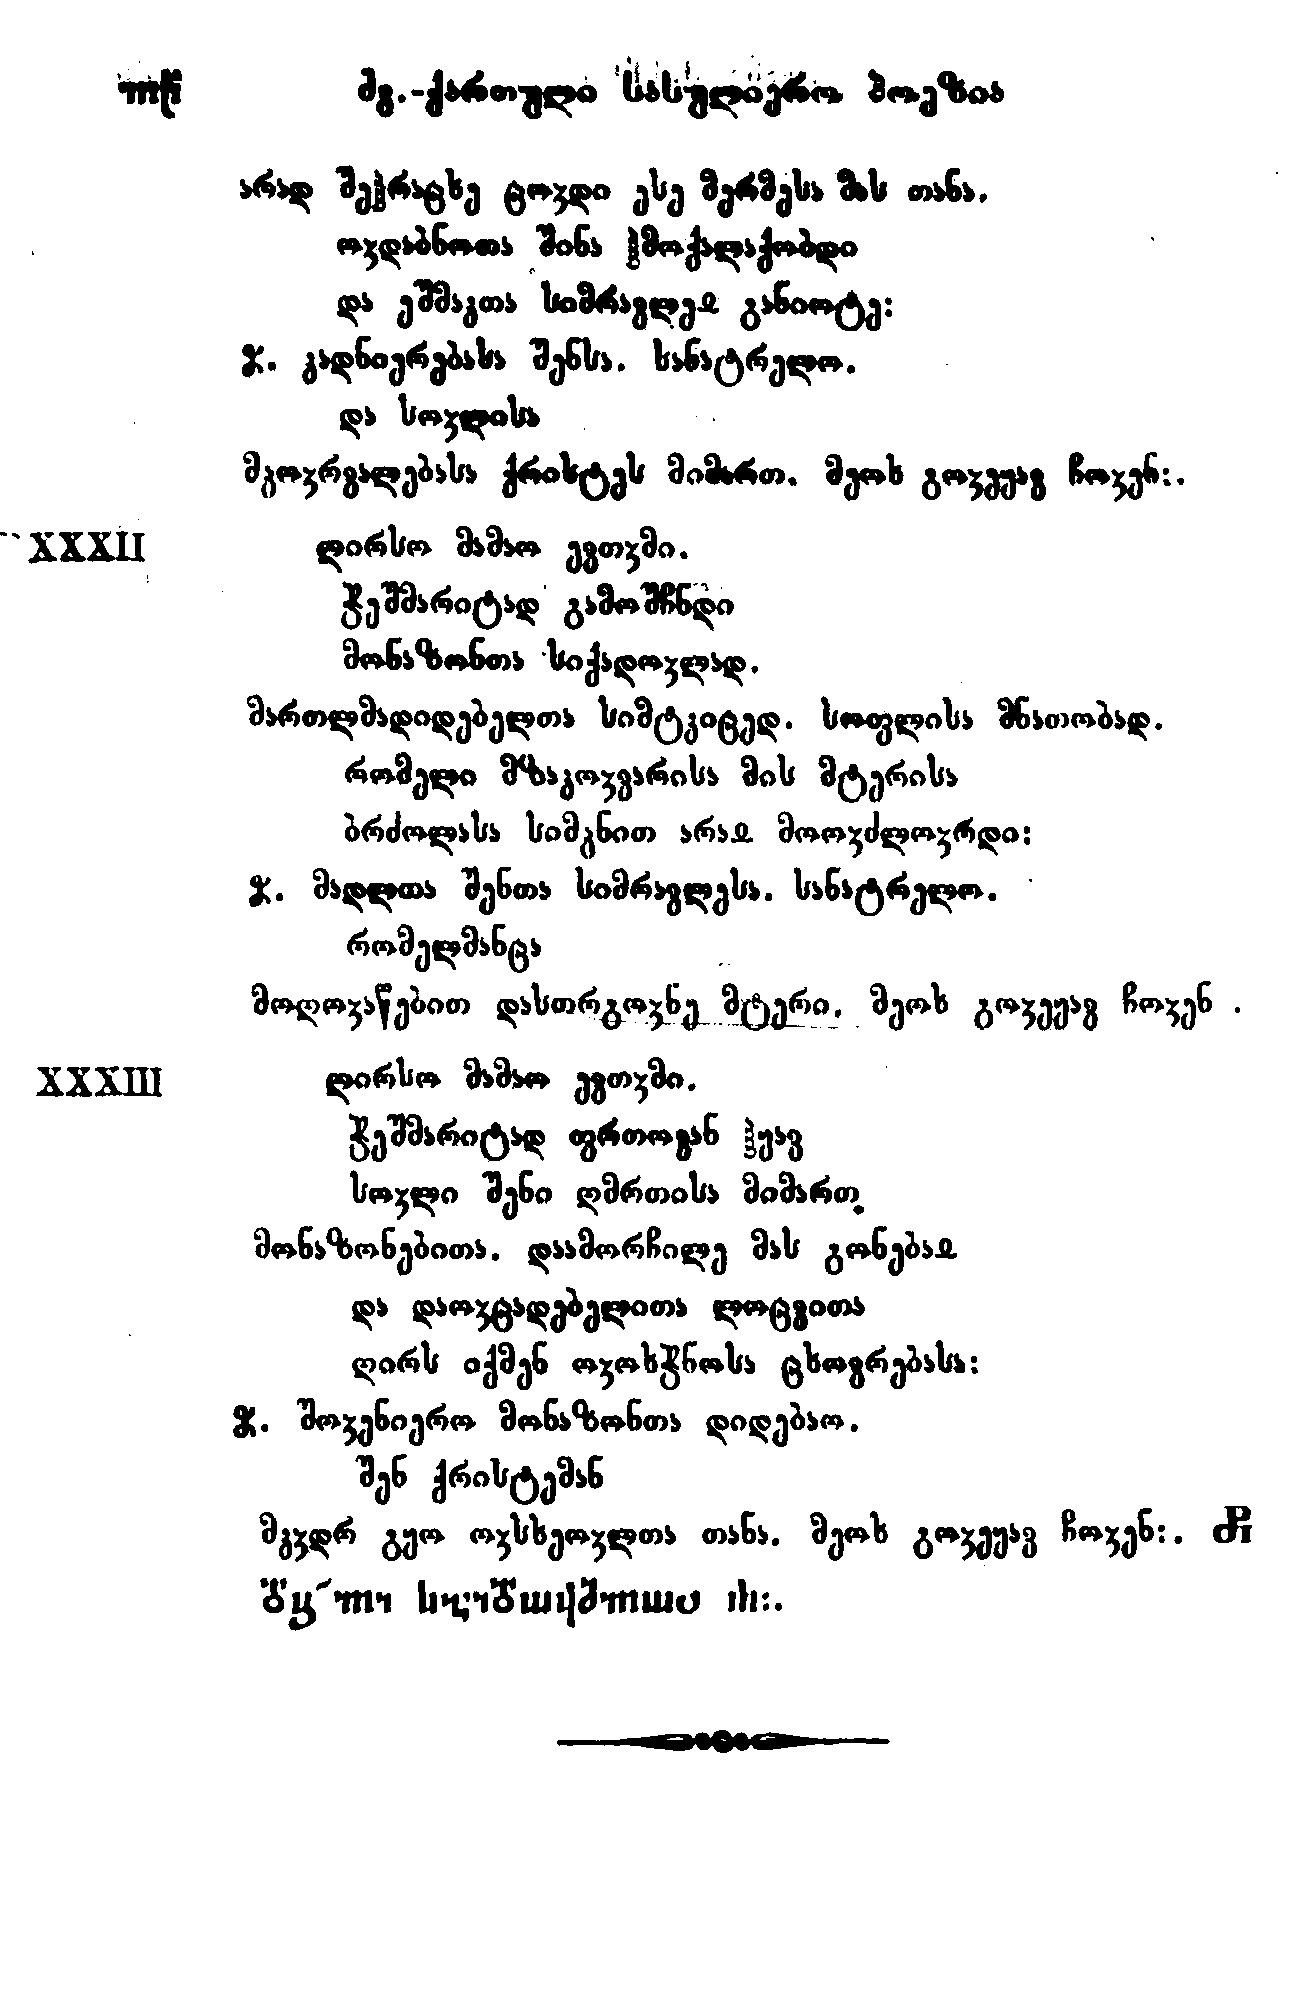 ძვ.-ქართული სასულიერო პოეზია
არად შეჰრაცხე ცოჳდი ესე მერმესა მას თანა.
ოჳდაბნოთა შინა ჰმოქალაქობდი
და ეშმაკთა სიმრავლეჲ განიოტე:
ჯ. კადნიერებასა შენსა. სანატრელო.
და სოჳლისა
მკოჳრვალებასა ქრისტეს მიმართ. მეოხ გოჳეყავ ჩოჳენ:.
XXXII ღირსო მამაო ევთჳმი.
ჭეშმარიტად გამოშჩნდი
მონაზონთა სიქადოჳლად.
მართლმადიდებელთა სიმტკიცედ. სოფლისა მნათობად.
რომელი მზაკოჳვარისა მის მტერისა
ბრძოლასა სიმკნით არაჲ მოოჳძლოჳრდი:
ჯ. მადლთა შენთა სიმრავლესა. სანატრელო.
რომელმანცა
მოღოჳაწებით დასთრგოჳნე მტერი. მეოხ გოჳეყავ ჩოჳენ .
XXXIII ღირსო მამაო ევთჳმი.
ჭეშმარიტად ფრთოვან ჰყავ
სოჳლი შენი ღმრთისა მიმართ.
მონაზონებითა. დაამორჩილე მას გონებაჲ
და დაოჳცადებელითა ლოცვითა
ღირს იქმენ ოჳოხჭნოსა ცხოვრებასა:
ჯ. შოჳენიერო მონაზონთა დიდებაო.
შენ ქრისტემან
მკჳდრ გყო ოჳსხეოჳლთა თანა. მეოხ გოჳეყავ ჩოჳენ:.